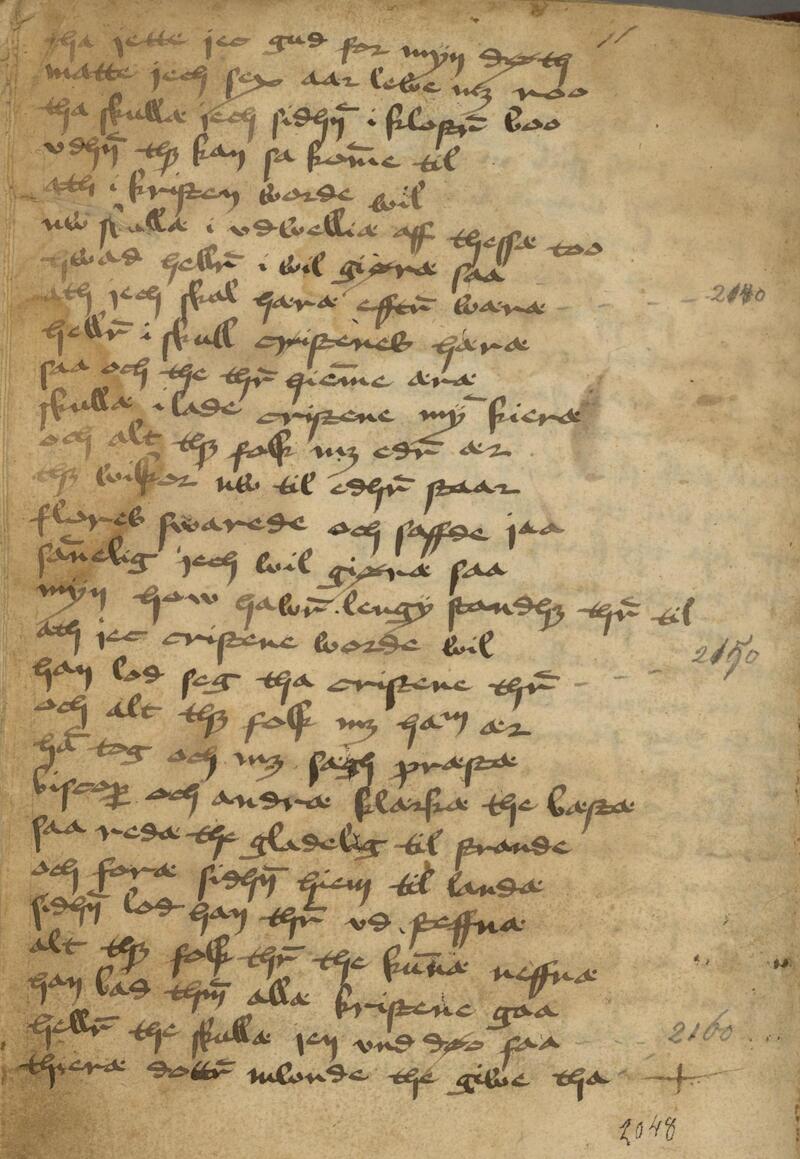 tha jette jec gud for myn døth
matte jech sex aar lewe mz roo
tha skullæ jech sidhn̄ i klostr̄ boo
vdhn̄ thz kan sa kom̄e til
ath i kristen worde wil
nw skullæ i vdwelliæ aff thessæ too
hwad hellr̄ i wil giøræ saa
ath jech skal haræ efftr̄ wæræ
2140
hellr̄ i skull cristenes hæræ
saa och the thr̄ hiem̄e æræ
skullæ i lade cristene my̅ kieræ
och alt thz folk mz edr̄ ær
thz wilkor nw til edhr̄ staar
flores swarede och saffde jaa
san̄elig jech wil giøræ saa
myn how hawr̄ lengy standhz thr̄ til
ath jec cristene worde wil
2150
han lod seg tha cristene thr̄
och alt thz folk mz ham ær
hā tog och mz sægh præstæ
biscop och andræ klærkæ the bæstæ
saa redæ the gladelig til strande
och foræ sidhn̄ hiem til landæ
sidhn̄ lod han thr̄ vd steffnæ
alt thz folk thr̄ the kun̄æ neffnæ
han bad thm̄ allæ kristene gaa
hellr̄ the skullæ jen vnd døø saa
2160
thieræ dottr̄ mwnde the giwe tha
2048